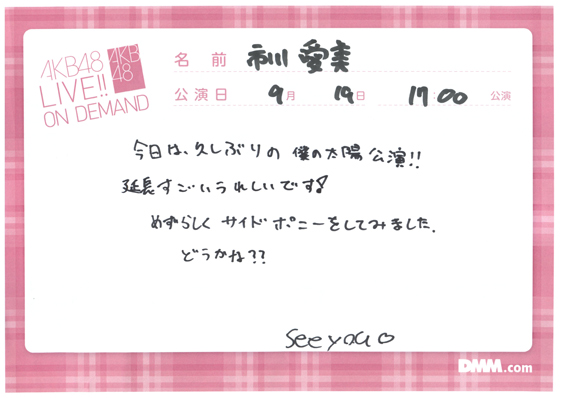 AKB48
LIVE!!
ON DEMAND
AKB
48
名前 市川 愛美
公演日 9月 19日 17:00 公演
今日は、久しぶりの 僕の太陽 公演!!
延長すごいうれしいです!
めずらしく サイドポニーをしてみました。
どうかな??
See you
DMM.com